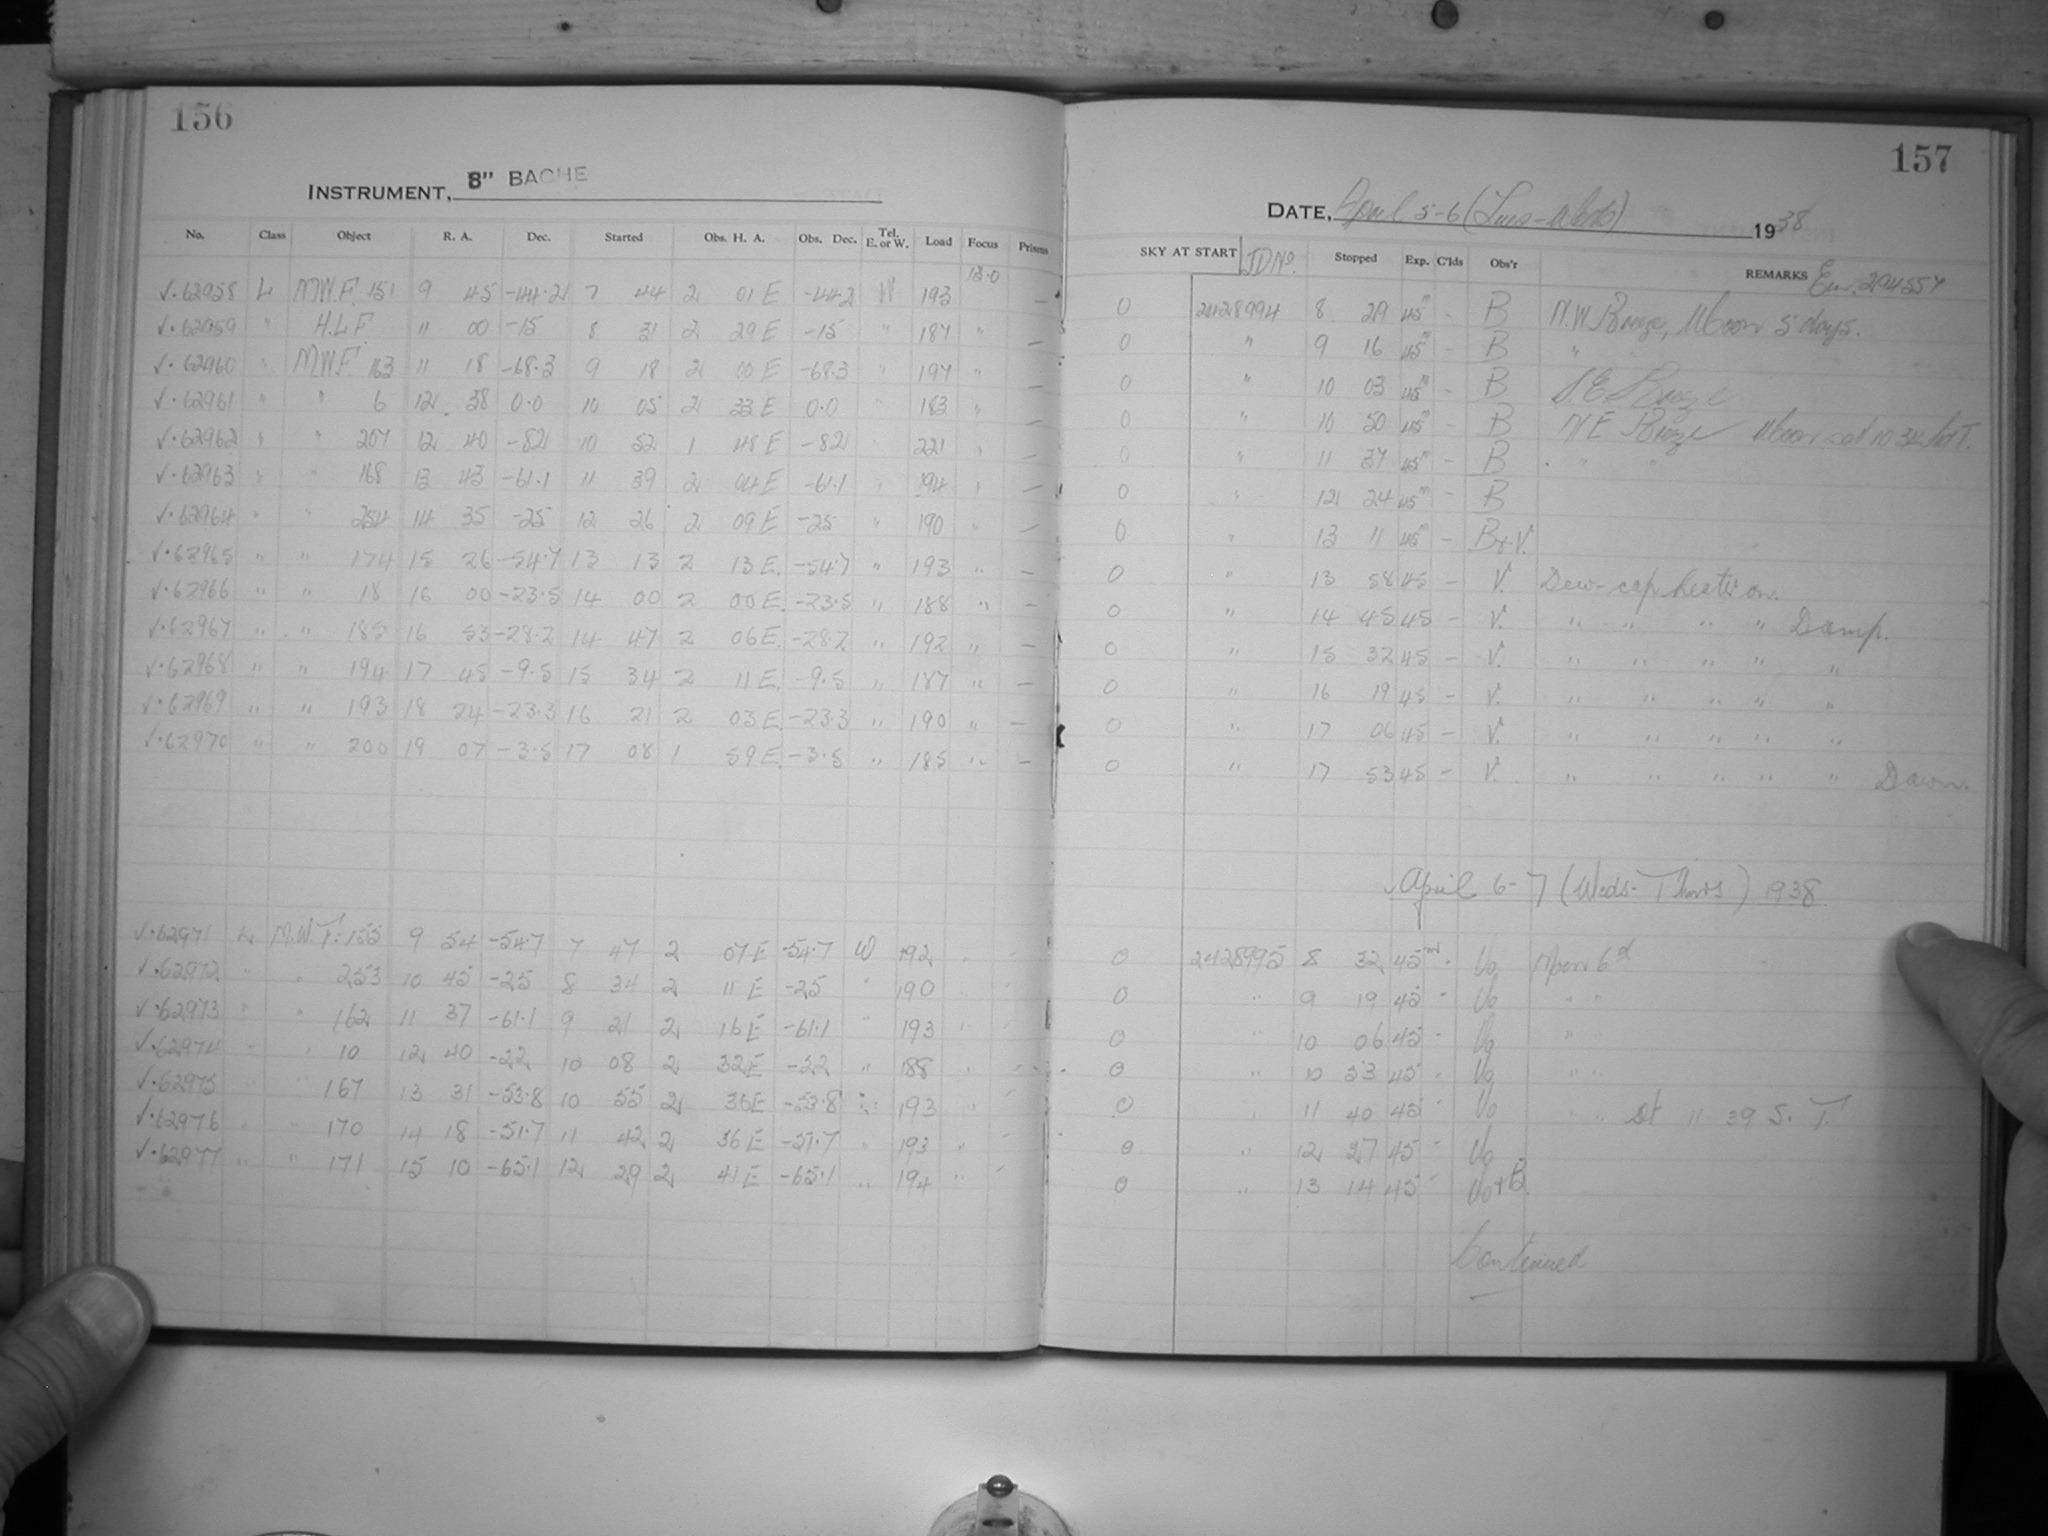 156
INSTRUMENT, 8" BACHE
No. Class Object R. A. Dec. Started Obs. H. A. Obs. Dec. Tel. E. or W. Load Focus Prisms
13.0
√.62958 L M.W.F. 151 9 45 -44.2 7 44 2 01 E -44.2 W 193 —
√.62959 " H.L.F. 11 00 -15 8 31 2 29 E -15 " 187 " —
√.62960 " M.W.F. 163 11 18 -68.3 9 18 2 00 E -68.3 " 197 " —
√.62961 " " 6 12 38 0.0 10 05 2 33 E 0.0 " 183 " —
√.62962 " " 207 12 40 -82 10 52 1 48 E -82 221 " —
√.62963 " " 168 13 43 -61.1 11 39 2 04 E -61.1 " 194 " —
√.62964 " " 254 14 35 -25 12 26 2 09 E -25 " 190 " —
√.62965 " " 174 15 26 -54.7 13 13 2 13 E. -54.7 " 193 " —
√.62966 " " 18 16 00 -23.5 14 00 2 00 E. -23.5 " 188 " —
√.62967 " " 185 16 53 -28.2 14 47 2 06 E. -28.2 " 192 " —
√.62968 " " 194 17 45 -9.5 15 34 2 11 E. -9.5 " 187 " —
√.62969 " " 193 18 24 -23.3 16 21 2 03 E. -23.3 " 190 " —
√.62970 " " 200 19 07 -3.5 17 08 1 59 E. -3.5 " 185 " —
√.62971 L M.W.F. 155 9 54 -54.7 7 47 2 07 E -54.7 W 192
√.62972 " " 253 10 45 -25 8 34 2 11 E -25 " 190
√.62973 " " 162 11 37 -61.1 9 21 2 16 E -61.1 " 193
√.62974 " " 10 12 40 -22 10 08 2 32 E -22 " 188
√.62975 " " 167 13 31 -53.8 10 55 2 36 E -53.8 " 193
√.62976 " " 170 14 18 -51.7 11 42 2 36 E -51.7 " 193
√.62977 " " 171 15 10 -65.1 12 29 2 41 E -65.1 " 194
157
DATE, April 5-6 (Tues-Weds) 1938
SKY AT START JD No. Stopped Exp. C'lds Obs'r REMARKS
0 2428994 8 29 45m - B N.W. Breeze, Moon 5 days.
0 " 9 16 45m - B "
0 " 10 03 45m - B S.E. Breeze
0 " 10 50 45m - B N E Breeze Moon set 10 34
0 " 11 37 45m - B " "
0 " 12 24 45m - B
0 " 13 11 45m - B+V.
0 " 13 58 45 - V. Dew-cap heater on.
0 " 14 45 45 - V. " " " " Damp.
0 " 15 32 45 - V. " " " " "
0 " 16 19 45 - V. " " " " "
0 " 17 06 45 - V. " " " " "
0 " 17 53 45 - V. " " " " " Dawn.
April 6-7 (Weds-Thurs) 1938
0 2428995 8 32 45m - Uo Moon 6d
0 " 9 19 45 - Uo " "
0 " 10 06 45 - Uo " "
0 " 10 53 45 - Uo " "
0 " 11 40 45 - Uo " " st 11 39 S. T.
0 " 12 27 45 - Uo
0 " 13 14 45 - Uo+B.
Continued